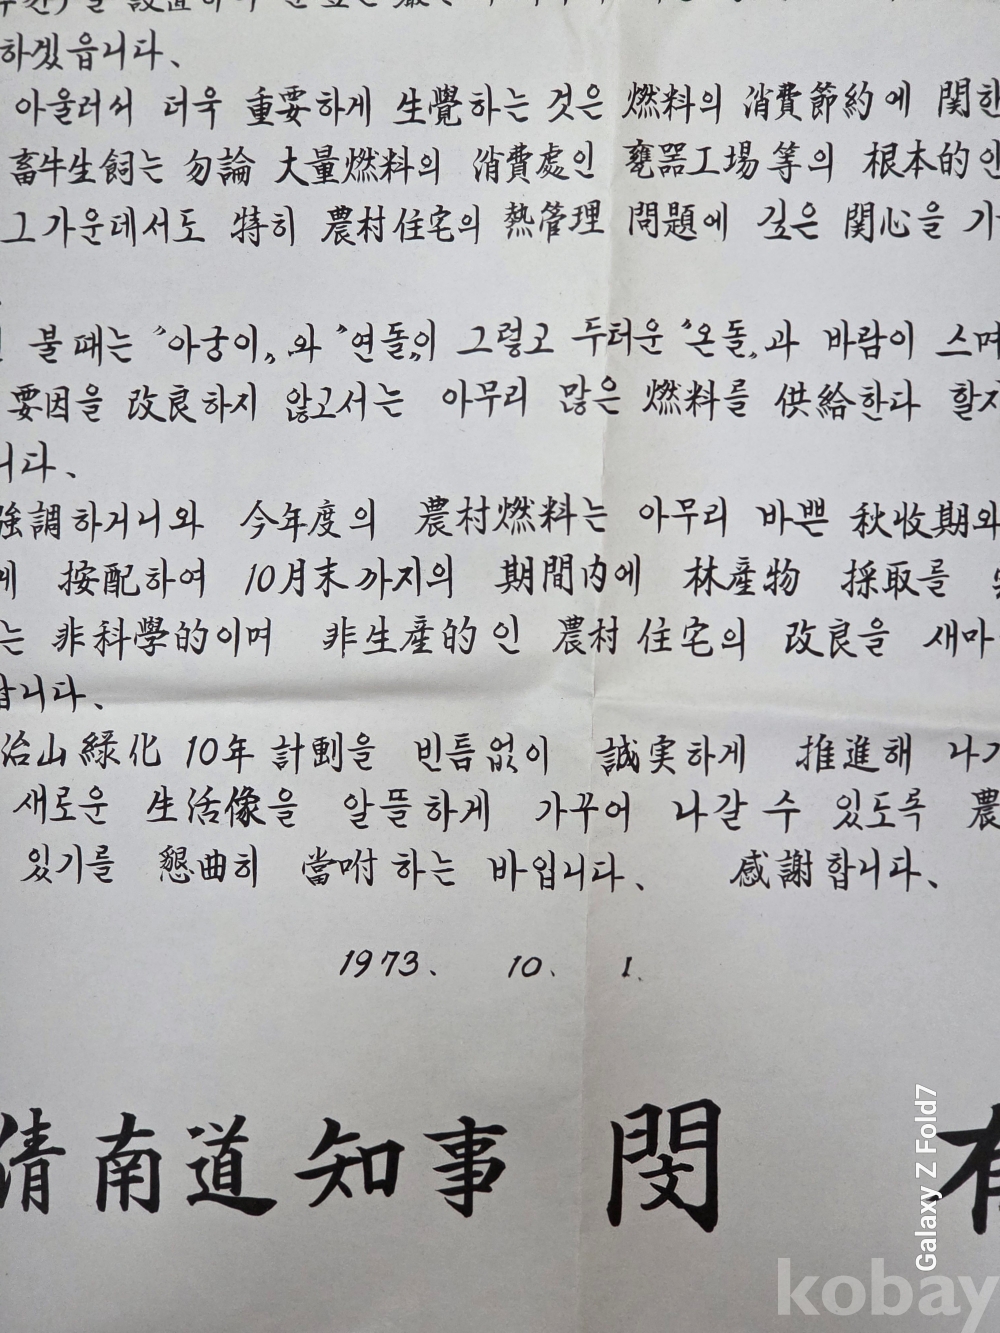 하겠읍니다、
아울러서 더욱 重要하게 生覺하는 것은 燃料의 消費節約에 関한
畜牛生飼는 勿論 大量燃料의 消費處인 甕器工場等의 根本的인
그가운데서도 特히 農村住宅의 熱管理 問題에 깊은 関心을 기
불때는 〝아궁이〟와 〝연돌〟이 그렇고 두터운 〝온돌〟과 바람이 스며
要因을 改良하지 않고서는 아무리 많은 燃料를 供給한다 할지
니다、
強調하거니와 今年度의 農村燃料는 아무리 바쁜 秋收期와
에 按配하여 10月末까지의 期間內에 林産物 採取를
는 非科學的이며 非生産的인 農村住宅의 改良을 새마
합니다、
治山綠化 10年計劃을 빈틈없이 誠実하게 推進해 나가
새로운 生活像을 알뜰하게 가꾸어 나갈 수 있도록 農
있기를 懇曲히 當咐하는 바입니다、 感謝합니다、
1973. 10. 1.
清南道知事 閔 有
Galaxy Z Fold7
kobay